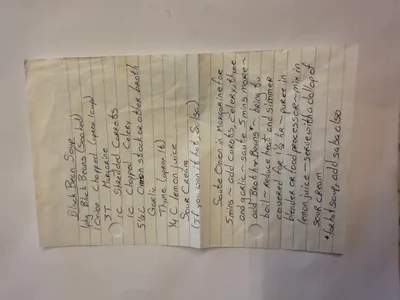 Black Bean Soup
1 pkg Black Beans (soaked)
1 onion chopped (approx 1 cup)
3 T Margarine
1 C Shredded Carrots
1 C Chopped Celery
5 1/2 C stock or other broth
Garlic
Thyme (approx 1t)
1/4 C lemon juice
Sour Cream
(If you want it hot, Salsa)
Saute Onion in Margarine for
5 mins ~ add carrots, celery, thyme
and garlic ~ saute 5 mins more ~
add Broth & Beans* ~ bring to
boil ~ Reduce heat and simmer
covered for 1 1/2 hr ~ puree in
blender or food processor ~ mix in
lemon juice ~ serve with a dollop of
sour cream
* for hot soup, add salsa also